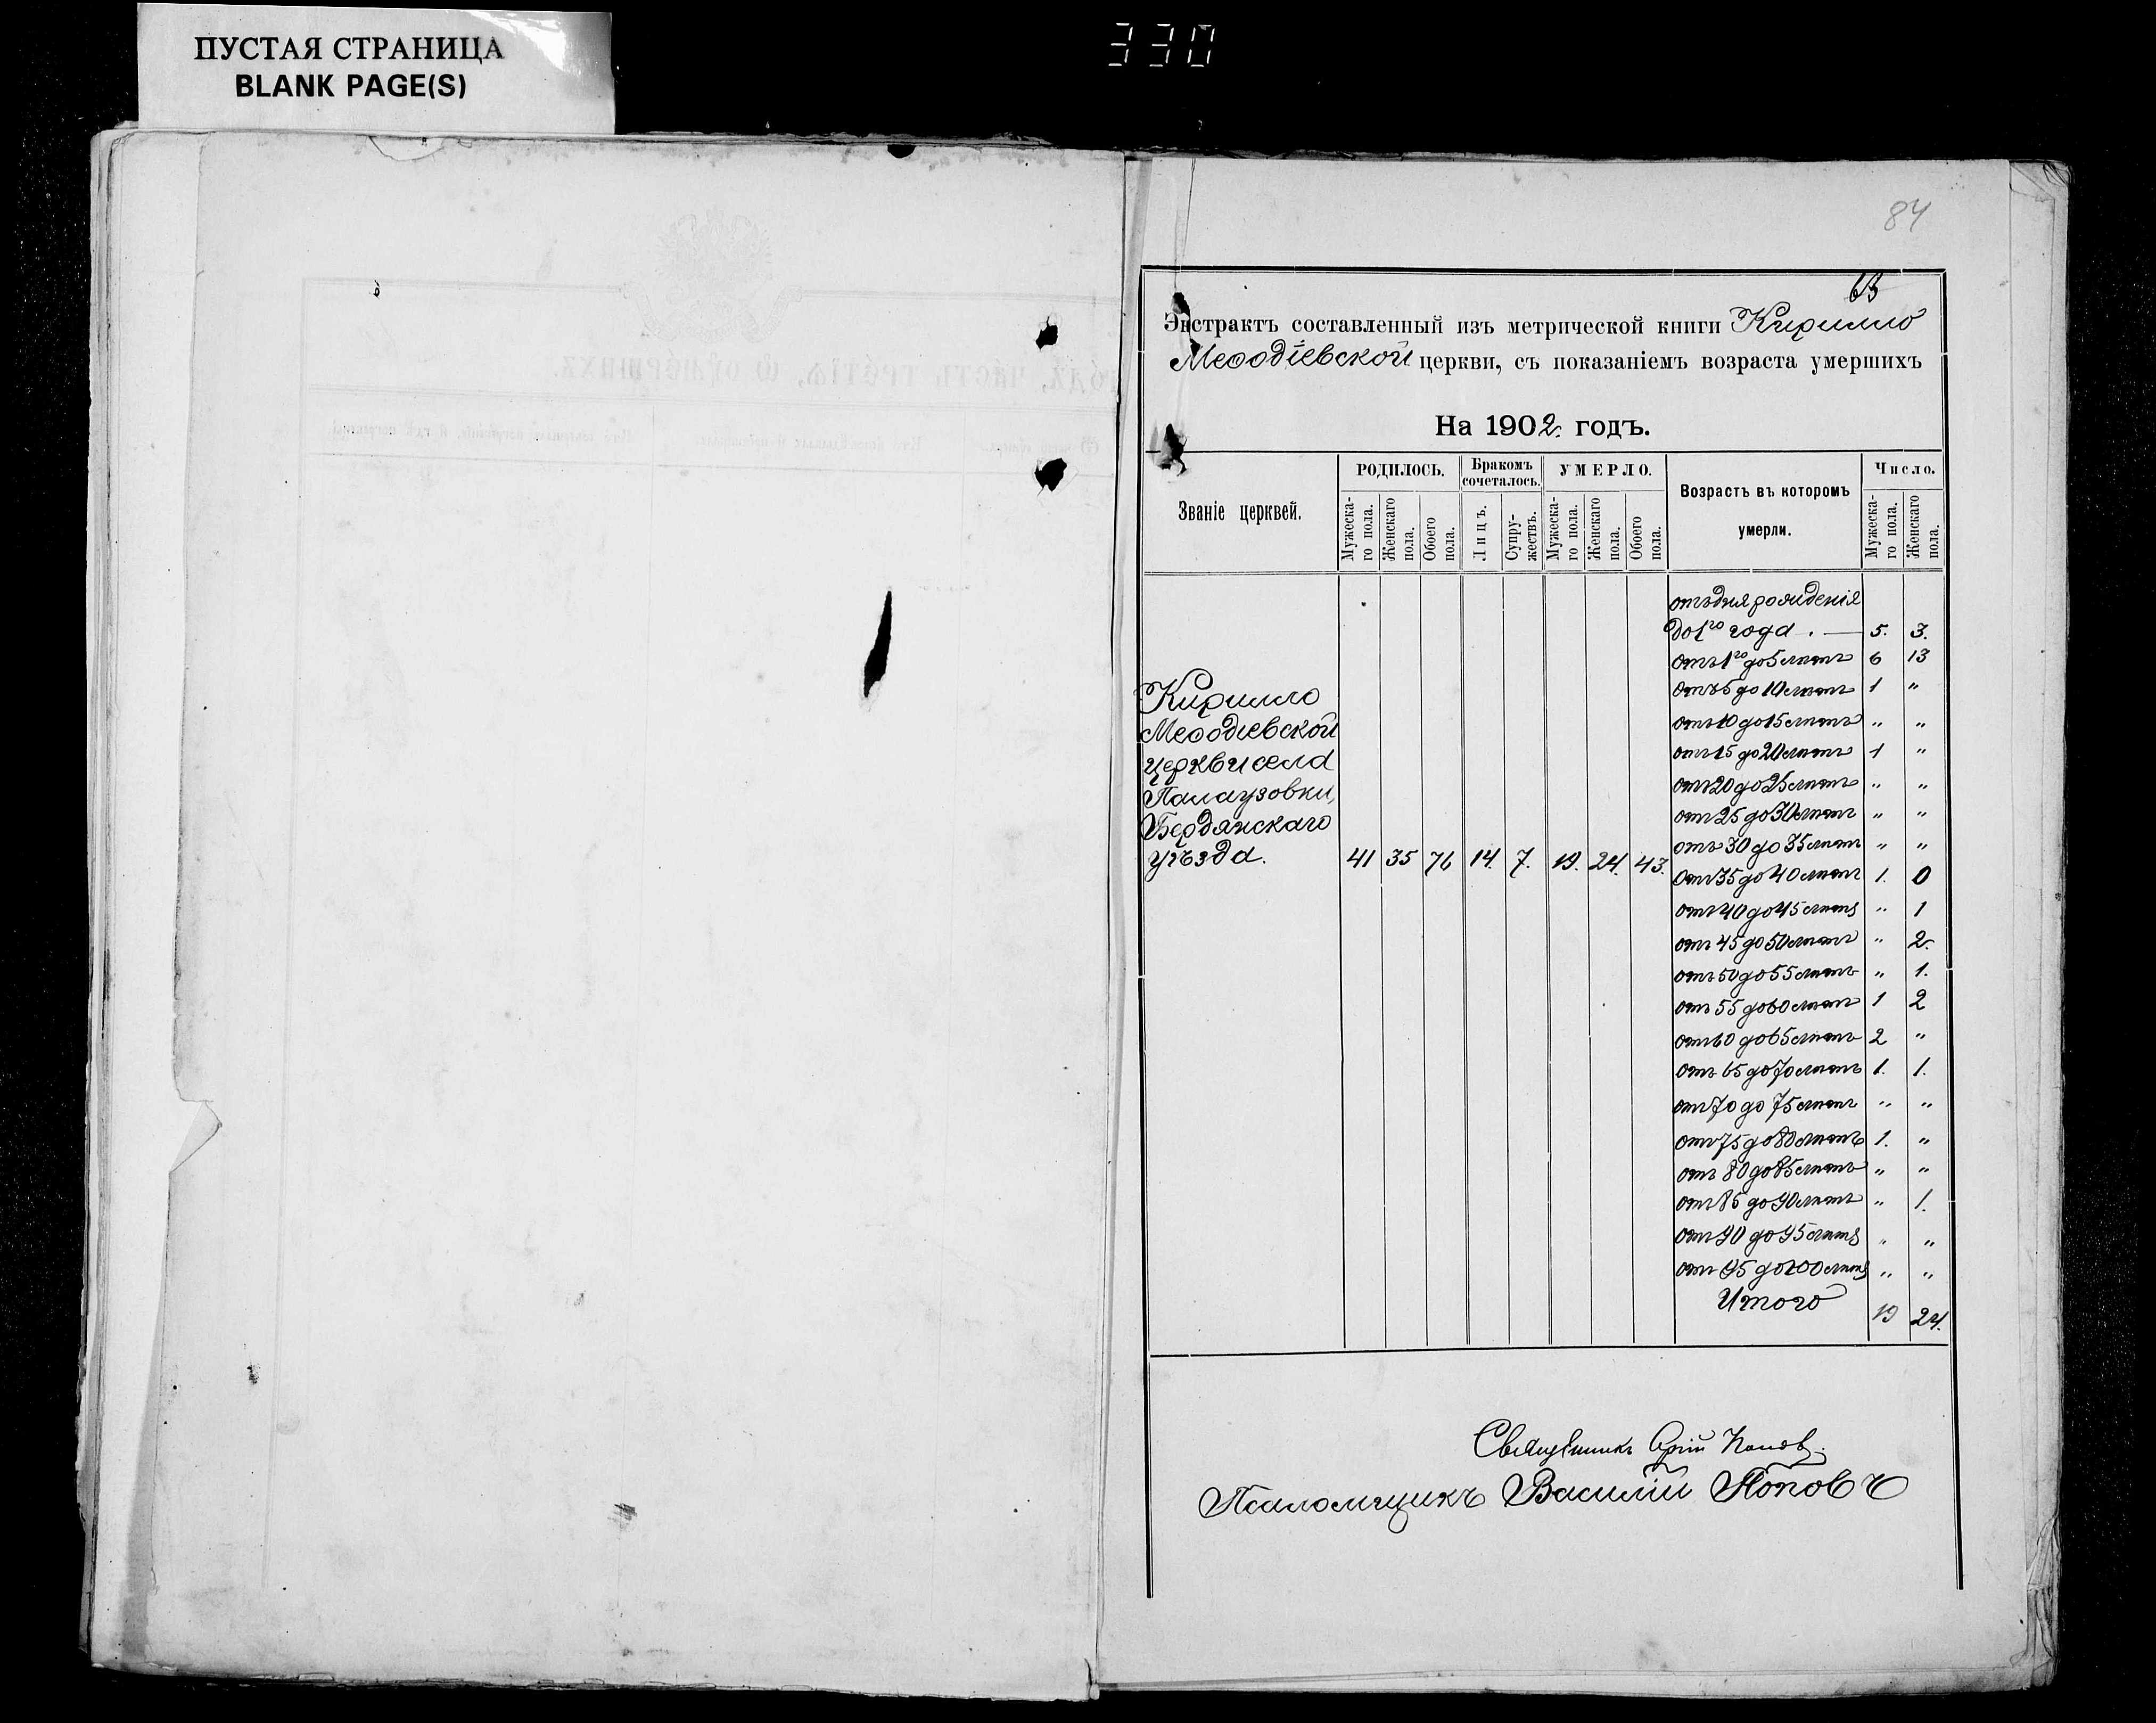 ПУСТАЯ СТРАНИЦА
BLANK PAGE(S)
330
84
63
Экстрактъ составленный изъ метрической книги Кирилло
Меѳодіевской церкви, съ показаніемъ возраста умершихъ
На 1902 годъ.
Званіе церквей.
РОДИЛОСЬ.
Мужеска-
го пола.
Женскаго
пола.
Обоего
пола.
Бракомъ
сочеталось.
Лицъ.
Супру-
жествъ.
УМЕРЛО.
Мужеска-
го пола.
Женскаго
пола.
Обоего
пола.
Возрастъ въ которомъ
умерли.
Число.
Мужеска-
го пола.
Женскаго
пола.
Кирилло
Меѳодіевской
церкви села
Палаузовки,
Бердянскаго
уѣзда. 41 35 76 14. 7. 19. 24. 43.
отъ дня рожденія
до 1го года . — 5. 3.
отъ 1го до 5 лѣтъ 6 13
отъ 5 до 10 лѣтъ 1 "
отъ 10 до 15 лѣтъ " "
отъ 15 до 20 лѣтъ 1 "
отъ 20 до 25 лѣтъ " "
отъ 25 до 30 лѣтъ " "
отъ 30 до 35 лѣтъ " "
отъ 35 до 40 лѣтъ 1. 0
отъ 40 до 45 лѣтъ " 1
отъ 45 до 50 лѣтъ " 2.
отъ 50 до 55 лѣтъ " 1.
отъ 55 до 60 лѣтъ 1 2
отъ 60 до 65 лѣтъ 2 "
отъ 65 до 70 лѣтъ 1. 1.
отъ 70 до 75 лѣтъ " "
отъ 75 до 80 лѣтъ 1. "
отъ 80 до 85 лѣтъ " "
отъ 85 до 90 лѣтъ " 1.
отъ 90 до 95 лѣтъ " "
отъ 95 до 100 лѣтъ " "
Итого 19 24.
Священникъ Попов.
Псаломщикъ Василій Поповъ